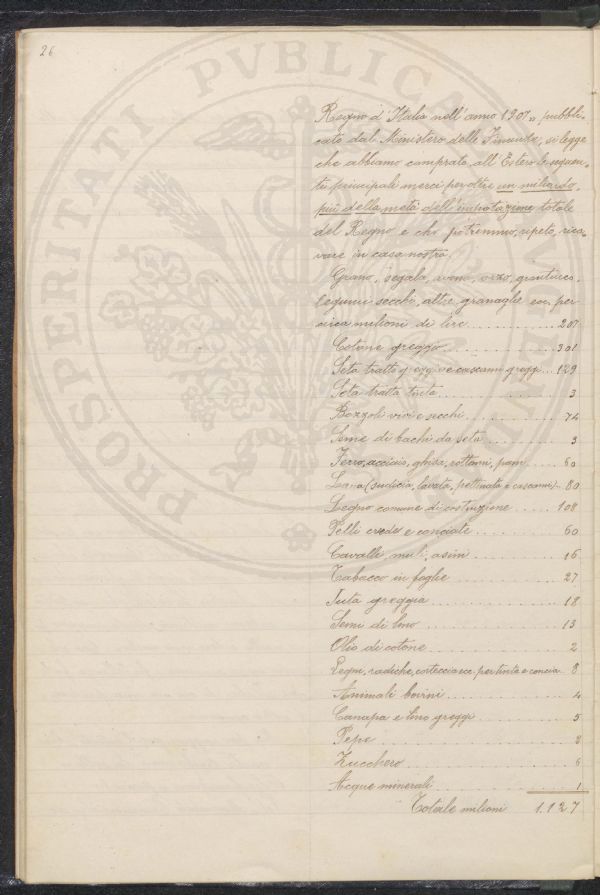 26
Regno d'Italia nell'anno 1907", pubbli-
cato dal Ministero delle Finanze, si legge
che abbiamo comprato all'Estero le seguen-
ti principali merci per oltre un miliardo,
più della metà dell'importazione totale
del Regno e che potremmo, ripeto, rica-
vare in casa nostra.
Grano, segala, avena, orzo, granturco,
legumi secchi, altre granaglie ecc. per
circa milioni di lire .......... 207
Cotone greggio .......... 301
Seta tratta greggia e cascami greggi ... 129
Seta tratta tinta .......... 3
Bozzoli vivi e secchi .......... 74
Seme di bachi da seta .......... 3
Ferro, acciaio, ghisa, rottami, pani .... 60
Lana (sudicia, lavata, pettinata e cascami) .. 80
Legno comune di costruzione .... 108
Pelli crude e conciate .......... 60
Cavalli, muli, asini .......... 16
Tabacco in foglie .......... 27
Juta greggia .......... 18
Semi di lino .......... 13
Olio di cotone .......... 2
Legni, radiche, corteccia ecc. per tinta e concia. 8
Animali bovini .......... 4
Canapa e lino greggi .......... 5
Pepe .......... 2
Zucchero .......... 6
Acque minerali .......... 1
Totale milioni 1.127
PROSPERITATI PVBLICAE